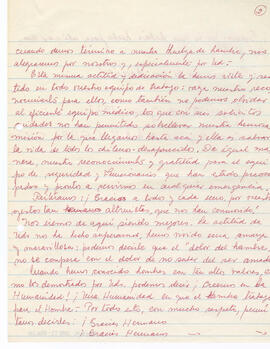 2
cuando demos término a nuestra Huelga de hambre, nos
alegramos por nosotros y especialmente por Uds.-
Esta misma actitud y dedicación la hemos visto y sentido
en todo vuestro equipo de trabajo: vaya nuestro reconocimiento
para ellos, como también no podemos olvidar
al eficiente equipo médico, los que con sus solícitos
cuidados no han permitido
misión por la que llegamos hasta acá y ella es saber
la vida de todos los chilenos-desaparecidos. De igual manera,
nuestro reconocimiento y gratitud para el equipo
de seguridad y Funcionarios que han estado preocupados
y prontos a servirnos en cualquier emergencia.
¡Gracias a todos y cada uno, por vuestros
gestos tan humanos altruistas, que nos han conmovido!
Nos iremos de aquí siendo mejores. La actitud de
Uds. no la habíamos esperado, han sido muy amigos
y maravillosos: podemos decirle que el "dolor del hambre,
no se compara con el dolor de no saber del ser amado."
Cuando hemos conocido hombres con tan altos valores, como
los demostrado por Uds. podemos decir: ¡Creemos en la
Humanidad! ¡Una Humanidad en que el hombre trabaja
para el Hombre. Por todo esto, con mucho respeto, permítannos
decirles: ¡Gracias Hermano
¡Gracias Hermano